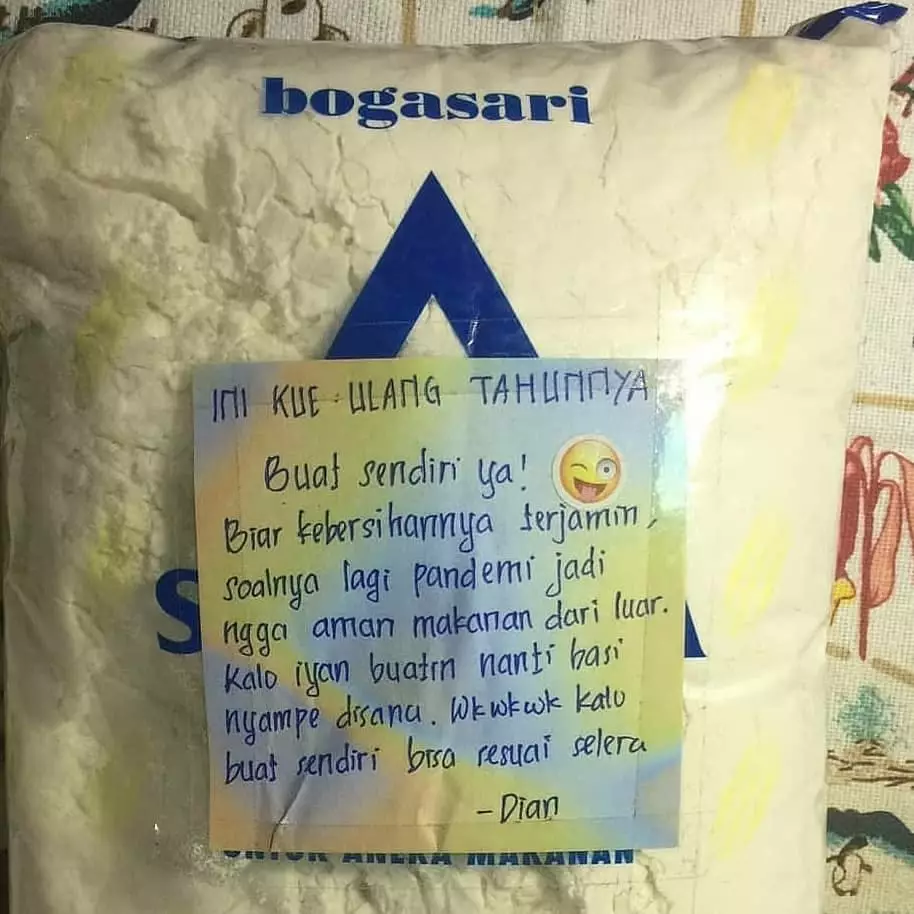 bogasari
INI KUE ULANG TAHUNNYA
Buat sendiri ya!
Biar kebersihannya terjamin,
soalnya lagi pandemi jadi
ngga aman makanan dari luar.
Kalo iyan buatin nanti basi
nyampe disana. Wkwkwk kalo
buat sendiri bisa sesuai selera
-Dian
S A
UNTUK ANEKA MAKANAN